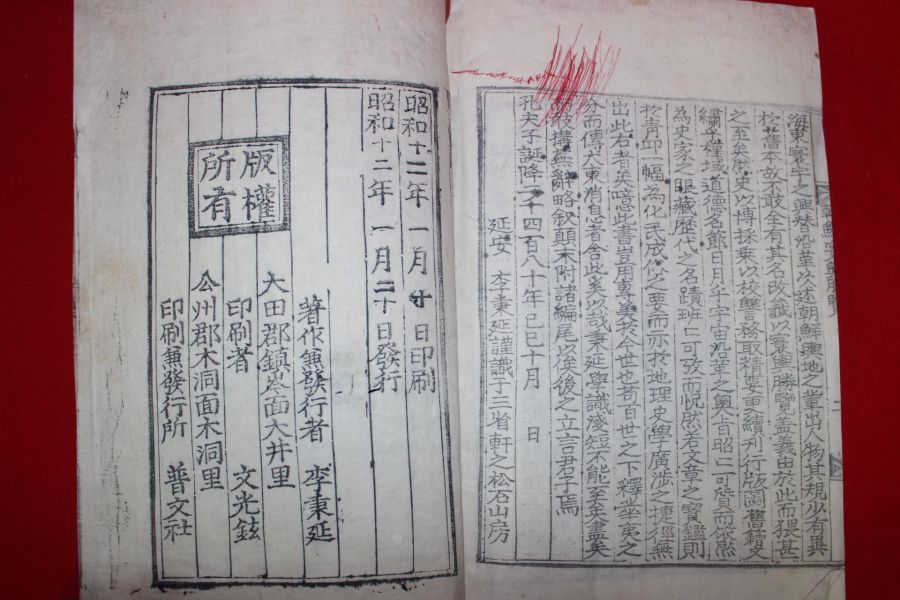 海東寰宇之興替沿革次述朝鮮輿地之輩出人物其規少有異
於舊本故不敢全有其名改籤以寰輿勝覽盖義由於此而猥甚
之至矣歷史以博採乘以校讐務取精要更續刊行版圖舊籍文
繡
名蹟班二可攷而怳然若文章之寶鑑則
於靑邱一幅爲化民成俗之要而亦於地理史學廣涉之捷徑無
出此右者矣噫此書豈用專美於今世也
分而傳大東消息者舍此奚以哉秉延學識淺短不能至矣盡矣
構無辭略叙顛末附諸編尾以俟後之立言君子焉
孔夫子誕降二千四百八十年己巳十月 日
延安 李秉延謹識于三省軒之松石山房
昭和十二年 一月 十日印刷
昭和十二年 一月二十日發行
版權所有
著作兼發行者 李秉延
大田郡鎭岑面大井里
印刷者 文光鉉
公州郡木洞面木洞里
印刷兼發行所 普文社